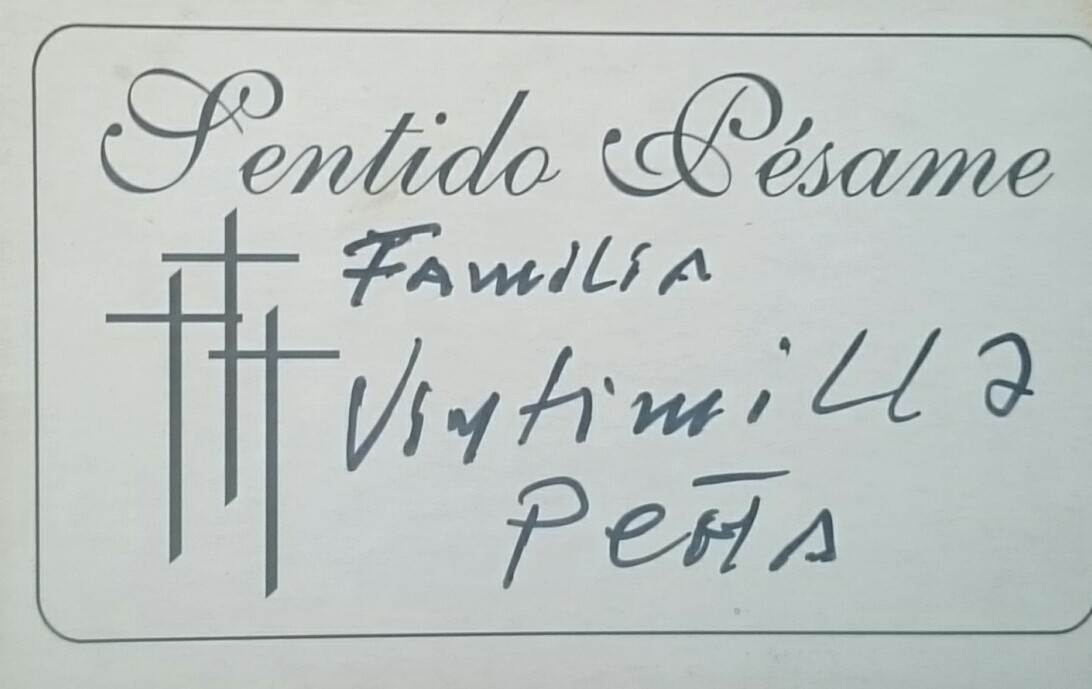 Sentido Pésame
Familia
Vintimilla
Peña